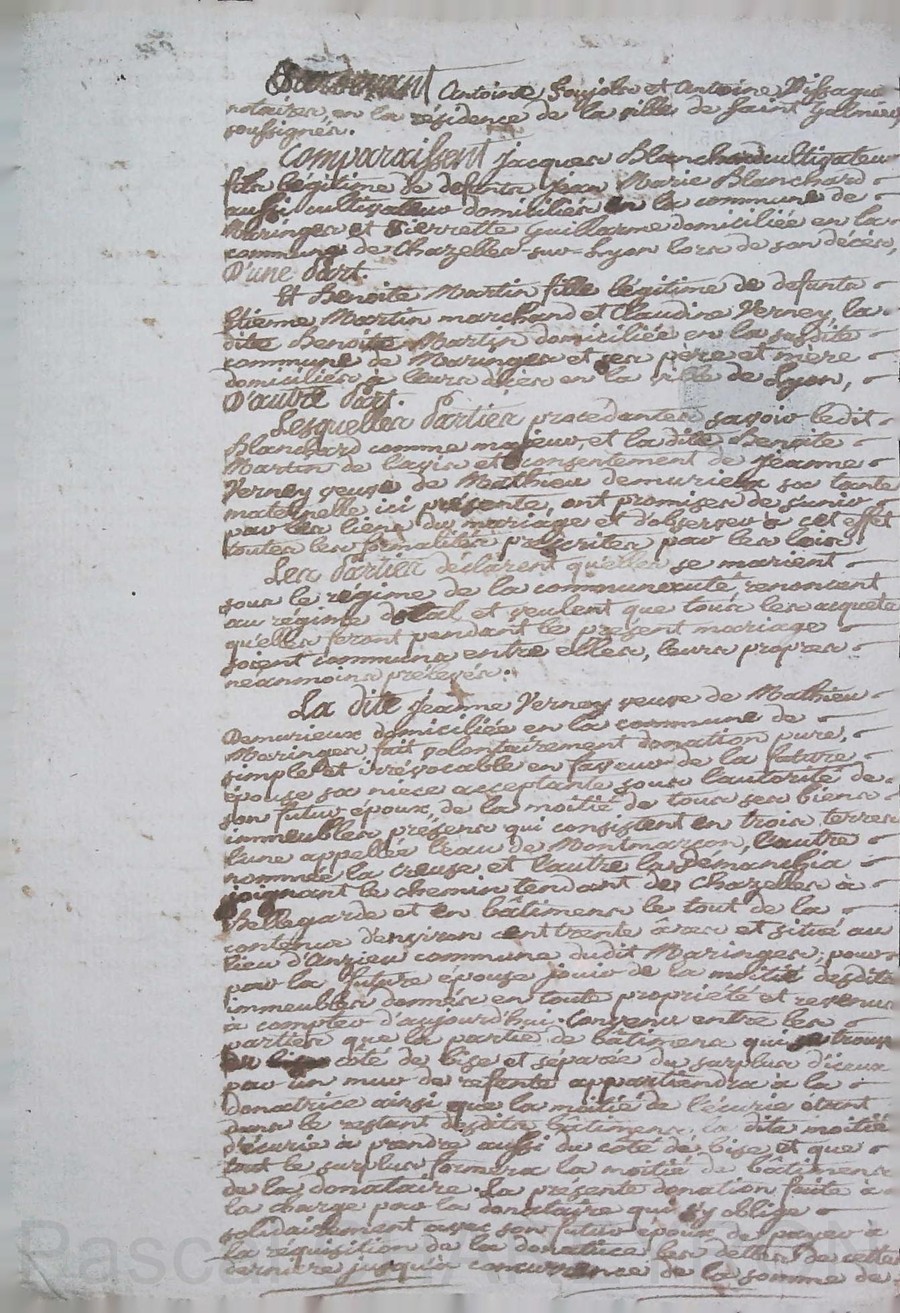 Pardevant Antoine Soujole et Antoine Vissague
notaires, en la résidence de la ville de Saint Galmier
soussignés.
Comparaissent Jacques Blanchard cultivateur
fils légitime de defunts Jean Marie Blanchard
aussi cultivateur domicilié en la commune de
Maringes et Pierrette Guillarme domiciliée en la
commune de Chazelles sur Lyon lors de son décès,
D'une Part.
Et Benoite Martin fille légitime de defunts
Etienne Martin marchand et Claudine Verney, la
dite Benoite Martin domiciliée en la susdite
commune de Maringes et ses père et mère
domiciliés à leurs décès en la ville de Lyon,
D'autre Part.
Lesquelles Parties procédantes savoir ledit
Blanchard comme majeur, et la dite Benoite
Martin de l'avis et consentement de Jeanne
Verney veuve de Mathieu Demurieux sa tante
maternelle ici présente, ont promises de s'unir
par les liens du mariage et d'observer à cet effet
toutes les formalités prescrites par les lois.
Les Parties déclarent qu'elles se marient
sous le régime de la communauté renoncent
au régime dotal et veulent que tous les acquets
qu'elles feront pendant le présent mariage
soient communs entre elles, leurs propres
néanmoins prélevés.
La dite Jeanne Verney veuve de Mathieu
Demurieux domiciliée en la commune de
Maringes fait volontairement donation pure,
simple et irrévocable en faveur de la future
épouse sa nièce acceptante sous l'autorité de
son futur époux, de la moitié de tous ses biens
immeubles présens qui consistent en trois terres
l'une appellée l'eau de Montmarçon, l'autre
nommée la creuse et l'autre les
joignant le chemin tendant de Chazelles à
Bellegarde et en bâtimens le tout de la
contenue d'environ cent trente ares et situé au
lieu d'Anzieu commune dudit Maringes; pour
par la future épouse jouir de la moitié desdits
immeubles donnés en toute propriété et revenus
à compter d'aujourd'hui. Convenu entre les
parties que la partie de bâtimens qui se trouve
côté de bise et séparée du surplus d'iceux
par un mur de refente appartiendra à la
Donatrice ainsi que la moitié de l'écurie étant
dans le restant desdits bâtimens, la dite moitié
d'écurie à prendre aussi du côté de bise, et que
tout le surplus formera la moitié de bâtimens
de la donataire. La présente donation faite à
la charge par la donataire qui s'y oblige
solidairement avec son futur époux de payer à
la réquisition de la donatrice les dettes de cette
dernière jusqu'à concurrence de la somme de